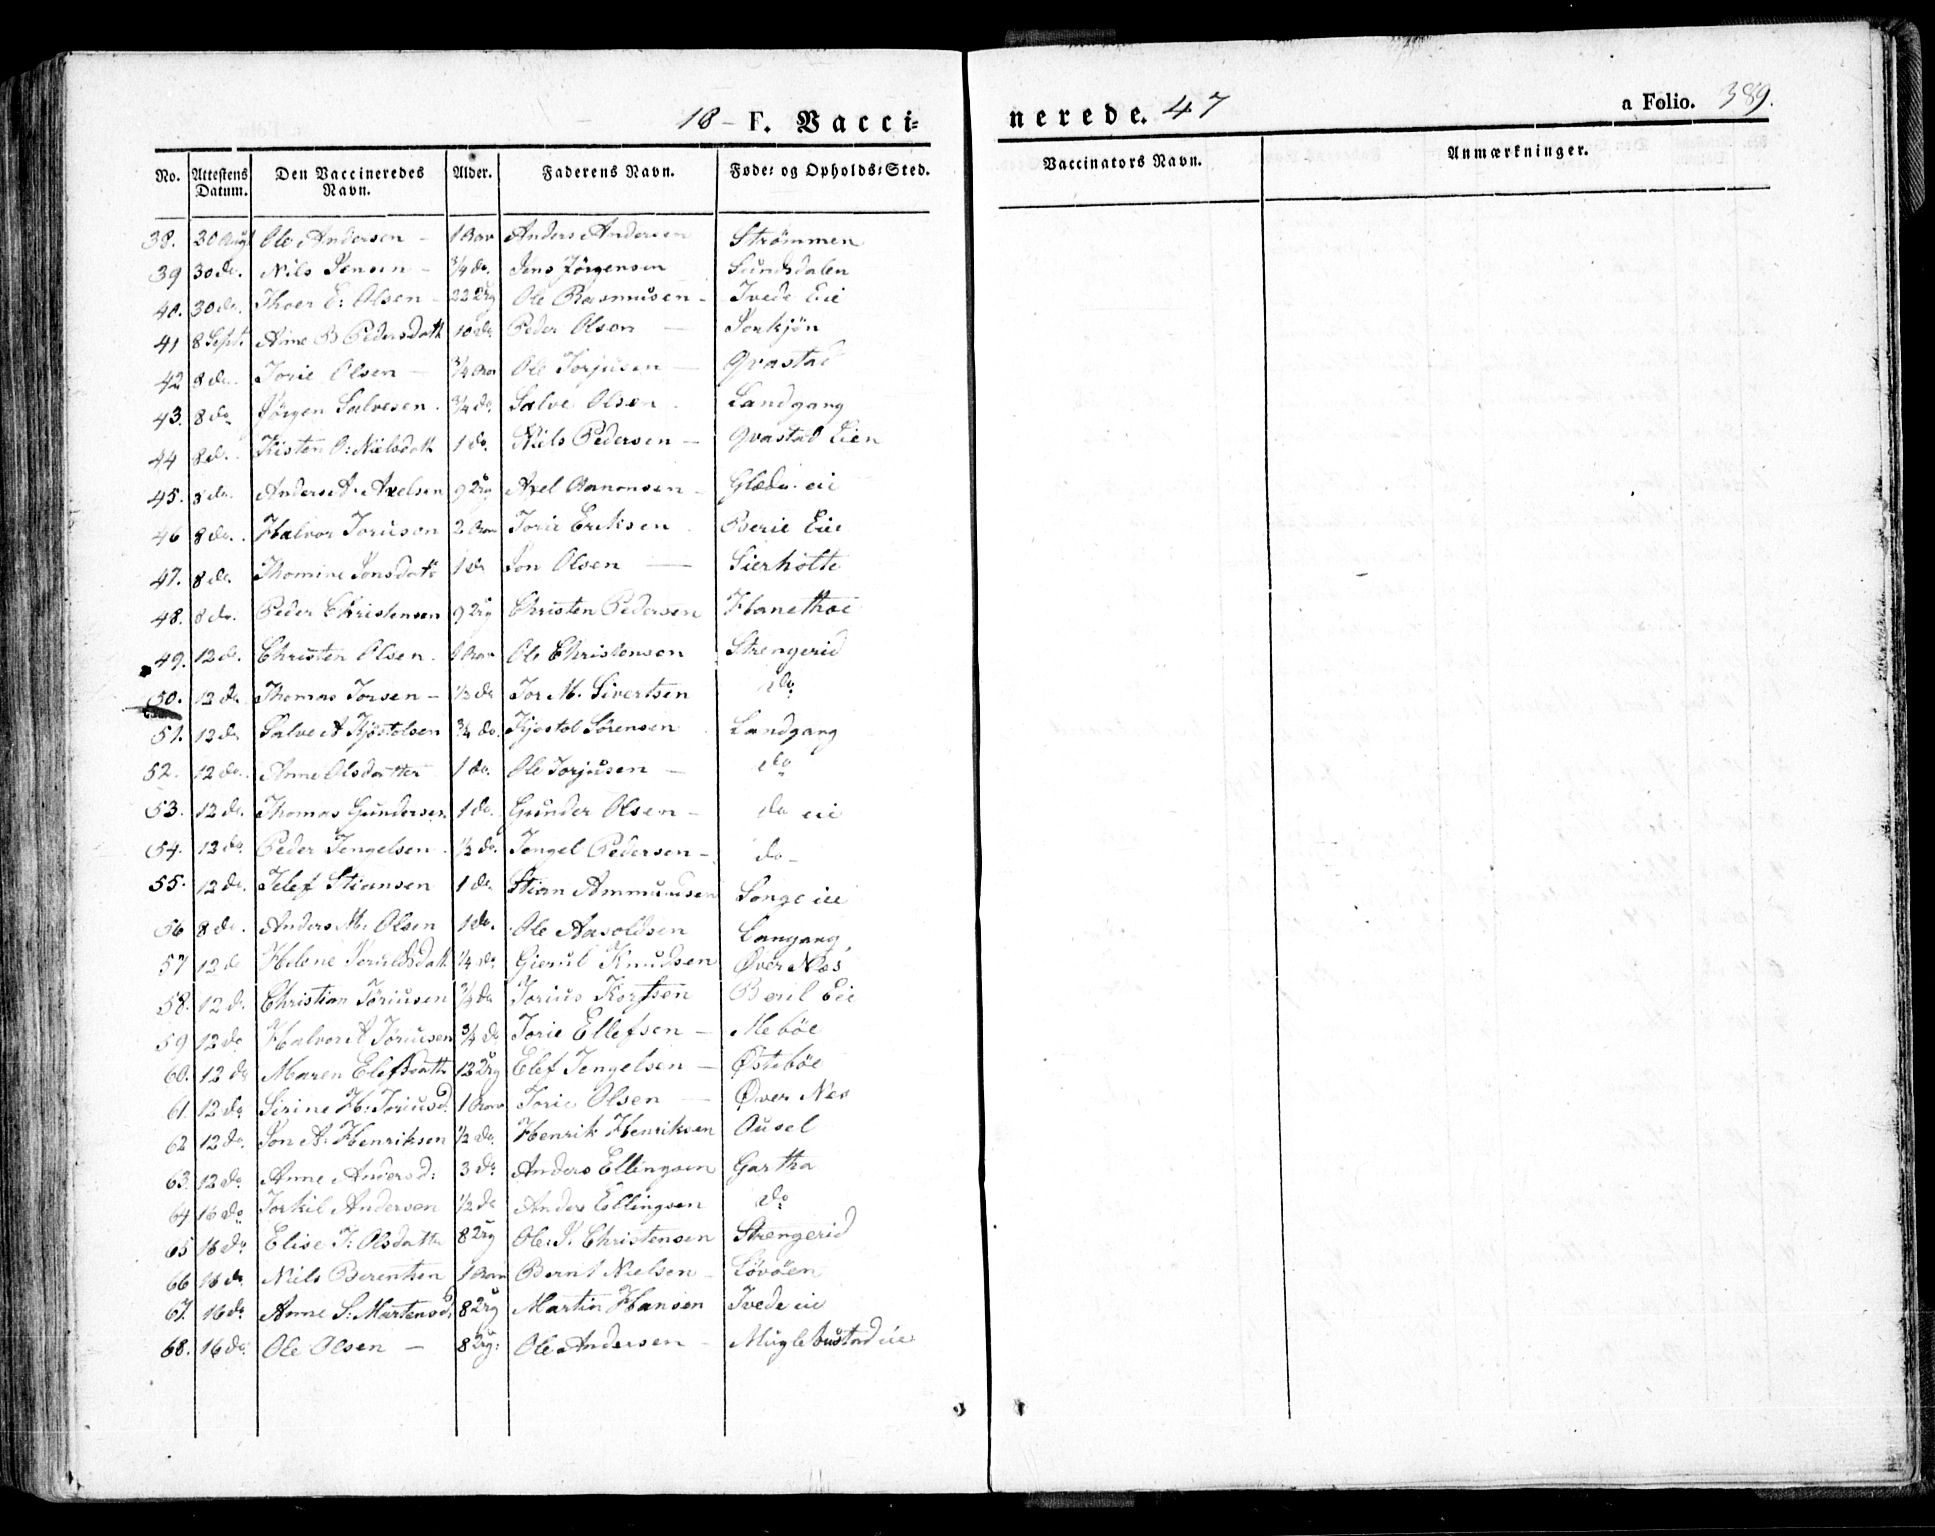 18 - F. Vacci- nerede. 47 a Folio. 389.
No. Attestens Datum. Den Vaccineredes Navn. Alder. Faderens Navn. Føde- og Opholds-Sted. Vaccinators Navn. Anmærkninger.
38. 30 Aug Ole Andersen - 1 Anders Andersen Strømmen
39 30 do. Nils Jensen - 3/4 do. Jens Jørgensen Sundsdalen
40. 30 do. Thoer E: Olsen - 22 Ole Rasmusen - Tvede Eie
41 8 Sept. Anne B Pedersdatt 10 do Peder Olsen - Torkjøn
42 8 do. Torie Olsen - 3/4 Ole Torjusen - Qvastad
43. 8 do Jørgen Salvesen. 3/4 do. Salve Olsen. Landgang
44 8 do. Kisten O: Nielsdatt 1 do. Niels Pedersen - Qvastad Eien
45. 8 do. Anders A: Axelsen 9 Axel Aanonsen - Glæde. eie
46 8 do. Halvor Toriuson 2 Torie Eriksen. Berie Eie
47. 8 do. Thomine Jonsdatt 1 do Jon Olsen - Lierholte
48. 8 do. Peder Christensen 9 Christen Pedersen Hanethoi
49. 12 do. Christen Olsen. 1 Ole Christensen Strengerid
50. 12 do Thomas Torsen - 1/2 do Tor M. Sivertsen do
51. 12 do Salve A Kjøstolsen 3/4 do. Kjøstol Sørensen Landgang
52. 12 do. Anne Olsdatter 1 do. Ole Torjusen - do
53. 12 do. Thomas Gundersen 1 do. Gunder Olsen - do eie
54. 12 do Peder Tengelsen. 1/2 do. Tengel Pedersen -. do -
55. 12 do. Telef Stiansen 1 do. Stian Ammundsen Songe eie
56 8 do. Anders M: Olsen 1 do. Ole Aasoldsen Langang
57 12 do Helene 1/4 do Gierul Knudsen Øver Næs
58. 12 do. Christian Toriusen 3/4 do Torius Eie
59 12 do Halvor A Toriusen 3/4 do Torie Ellefsen - Mebøe
60. 12 do Maren Elefsdatt 12 Elef Tengelsen - Østebøe
61. 12 do Sirine H: Toriusd. 1 Torie Olsen - Øver Nes
62 12 do. Jon A: Henriksen 1/2 do. Henrik Henriksen Ausel
63. 12 do. Anne Andersd: 3 do Anders Ellingsen Gartha
64 16 do Torkil Andersen 1/2 do Anders Ellingsen do
65 16 do Elise T: Olsdatter 8 Ole. J. Christensen Strengerid
66 16 do Nils Berentsen 1 Bernt Nielsen - Løvøen
67. 16 do Anne S: Martensd. 8 Martin Hansen Tvede eie
68. 16 do Ole Olsen - 8 Ole Andersen - Muglebustad eie